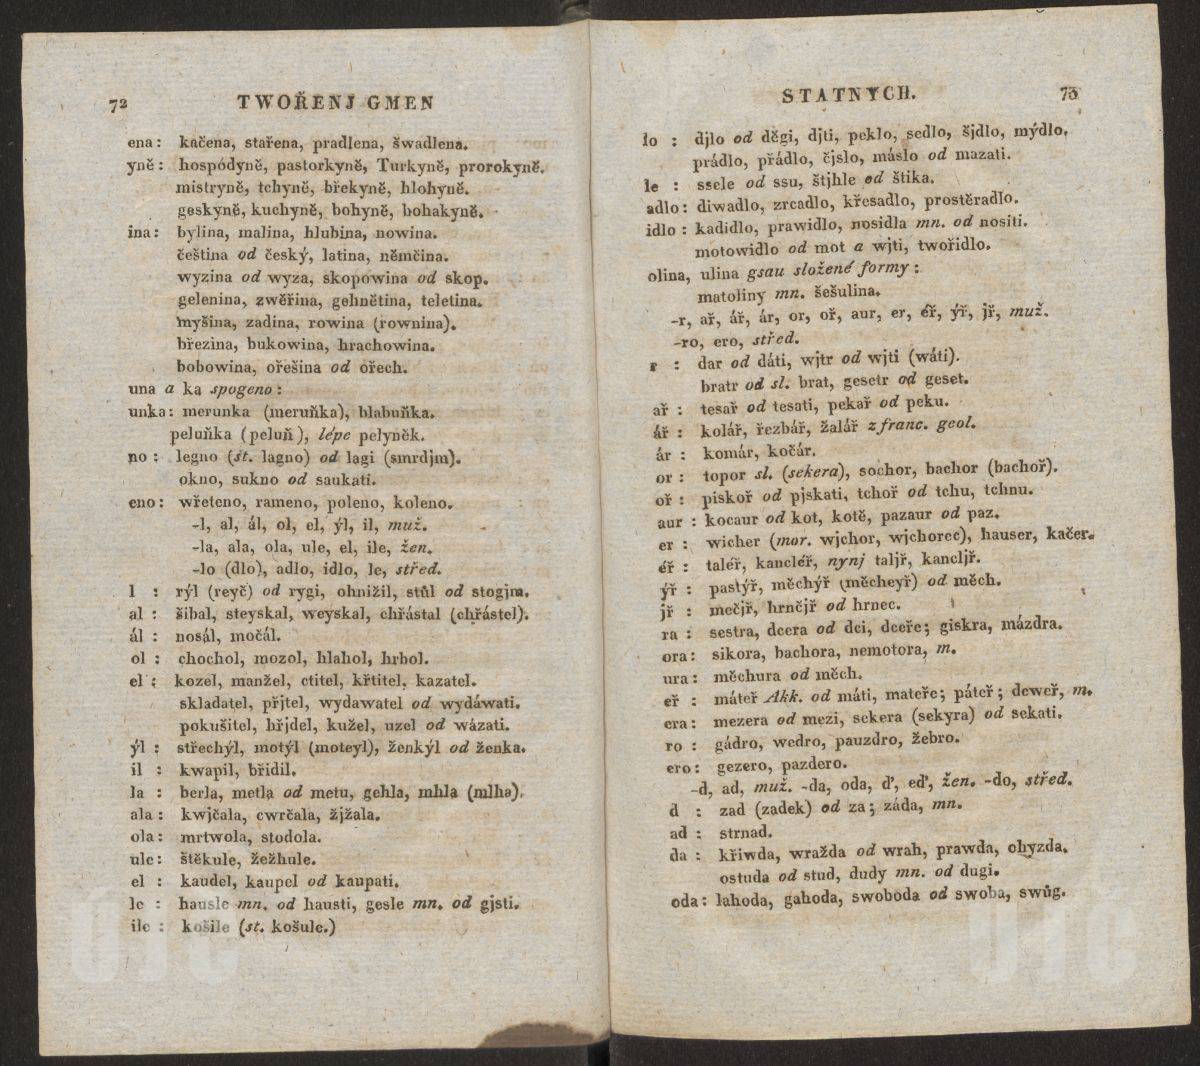 72 TWOŘENJ GMEN
ena: kačena, stařena, pradlena, šwadlena.
yně: hospódyně, pastorkyně, Turkyně, prorokyně.
mistryně, tchyně, břekyně, hlohyně.
geskyně, kuchyně, bohyně, bohakyně.
ina: bylina, malina, hlubina, nowina.
čeština od český, latina, němčina.
wyzina od wyza, skopowina od skop.
gelenina, zwěřina, gehnětina, teletina.
myšina, zadina, rowina (rownina).
březina, bukowina, hrachowina.
bobowina, ořešina od ořech.
una a ka spogeno:
unka: merunka (meruňka), blabuňka.
peluňka (peluň), lépe pelyněk.
no: legno (st. lagno) od lagi (smrdjm).
okno, sukno od saukati.
eno: wřeteno, rameno, poleno, koleno.
-l, al, ál, ol, el, ýl, il, muž.
-la, ala, ola, ule, el, ile, žen.
-lo (dlo), adlo, idlo, le, střed.
l : rýl (reyč) od rygi, ohnižil, stůl od stogjm.
al : šibal, steyskal, weyskal, chřástal (chřástel).
ál : nosál, močál.
ol : chochol, mozol, hlahol, hrbol.
el : kozel, manžel, ctitel, křtitel, kazatel.
skladatel, přjtel, wydawatel od wydáwati.
pokušitel, hřjdel, kužel, uzel od wázati.
ýl : střechýl, motýl (moteyl), ženkýl od ženka.
il : kwapil, břidil.
la : berla, metla od metu, gehla, mhla (mlha).
ala: kwjčala, cwrčala, žjžala.
ola: mrtwola, stodola.
ule: štěkule, žežhule.
el : kaudel, kaupel od kaupati.
le : hausle mn. od hausti, gesle mn. od gjsti.
ile : košile (st. košule.)
STATNYCH. 73
lo : djlo od děgi, djti, peklo, sedlo, šjdlo, mýdlo.
prádlo, přádlo, čjslo, máslo od mazati.
le : ssele od ssu, štjhle od štika.
adlo: diwadlo, zrcadlo, křesadlo, prostěradlo.
idlo : kadidlo, prawidlo, nosidla mn. od nositi.
motowidlo od mot a wjti, twořidlo.
olina, ulina gsau složené formy:
matoliny mn. šešulina.
-r, ař, ář, ár, or, oř, aur, er, éř, ýř, jř, muž.
-ro, ero, střed.
r : dar od dáti, wjtr od wjti (wáti).
bratr od sl. brat, gesetr od geset.
ař : tesař od tesati, pekař od peku.
ář : kolář, řezbář, žalář z franc. geol.
ár : komár, kočár.
or : topor sl. (sekera), sochor, bachor (bachoř).
oř : piskoř od pjskati, tchoř od tchu, tchnu.
aur : kocaur od kot, kotě, pazaur od paz.
er : wicher (mor. wjchor, wjchorec), hauser, kačer.
éř : taléř, kancléř, nynj taljř, kancljř.
ýř : pastýř, měchýř (měcheyř) od měch.
jř : mečjř, hrnčjř od hrnec.
ra : sestra, dcera od dci, dceře; giskra, mázdra.
ora: sikora, bachora, nemotora, m.
ura: měchura od měch.
eř : máteř Akk. od máti, mateře; páteř; deweř, m.
era: mezera od mezi, sekera (sekyra) od sekati.
ro : gádro, wedro, pauzdro, žebro.
ero: gezero, pazdero.
-d, ad, muž. -da, oda, ď, eď, žen. -do, střed.
d : zad (zadek) od za; záda, mn.
ad : strnad.
da : křiwda, wražda od wrah, prawda, ohyzda.
ostuda od stud, dudy mn. od dugi.
oda: lahoda, gahoda, swoboda od swoba, swůg.
ÚJČ
ÚJČ